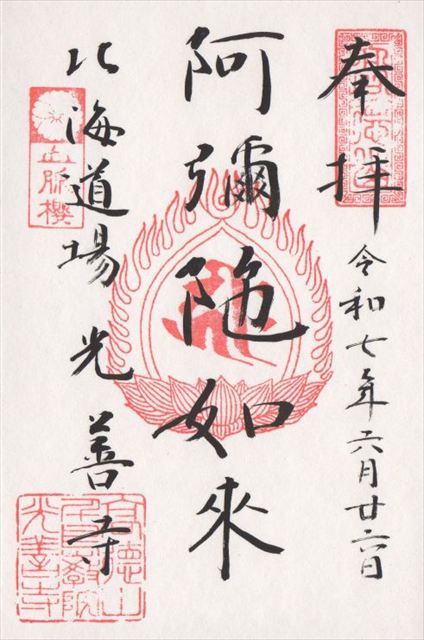 奉拝 令和七年六月廿六日
阿彌陀如來
北海道場 光善寺
光善寺